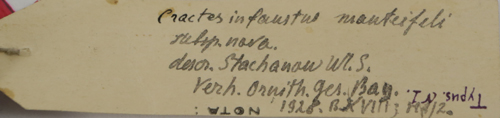 Cractes infaustus manteifeli
subsp. nova.
descr. Stachanow Wl. S.
Verh. Ornith. Ges. Bay.
1928. B. XVIII;
Typus. N I.
NOTA: